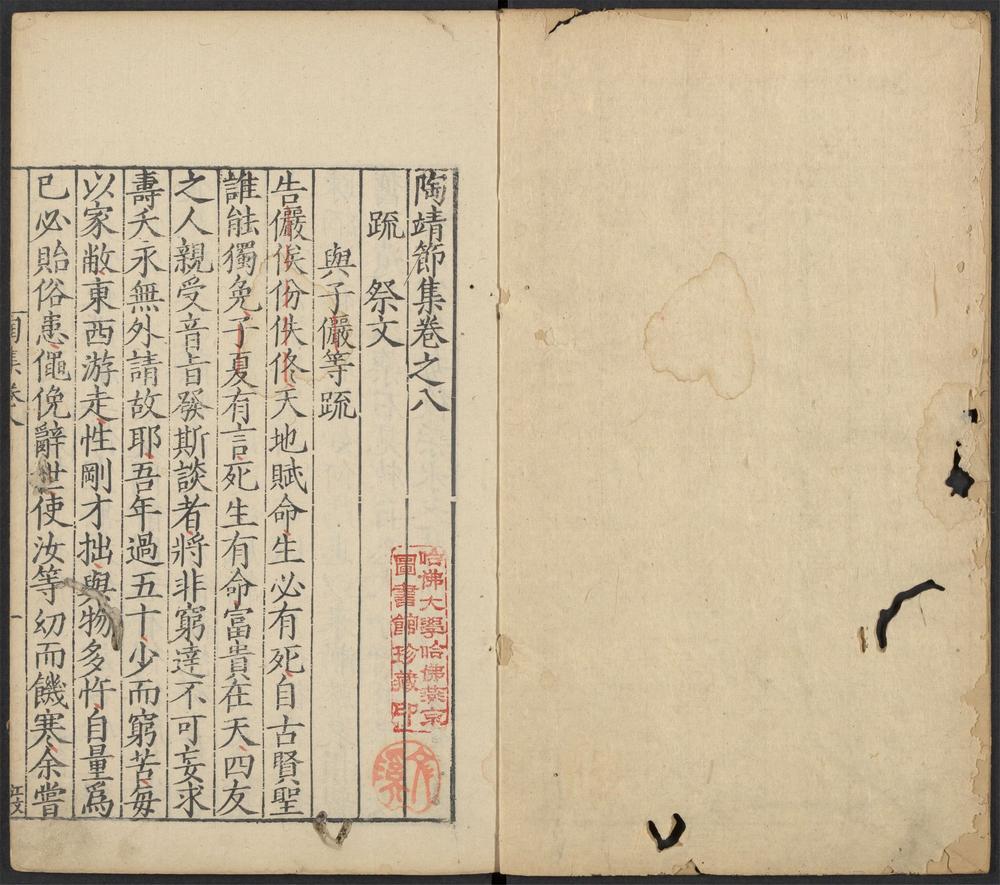 陶靖節集卷之八
疏 祭文
與子儼等疏
告儼俟份佚佟天地賦命生必有死自古賢聖
誰能獨免子夏有言死生有命富貴在天四友
之人親受音旨發斯談者將非窮達不可妄求
壽夭永無外請故耶吾年過五十少而窮苦每
以家敝東西游走性剛才拙與物多忤自量爲
已必貽俗患僶俛辭世使汝等幼而饑寒余嘗
陶集卷八
一
哈佛大學哈佛燕京
圖書館珍藏印